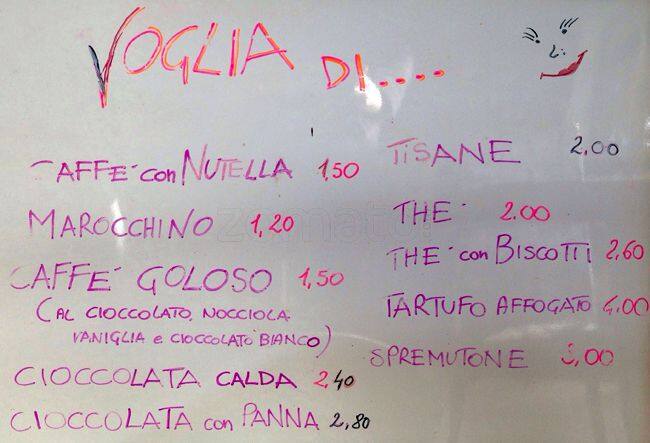 VOGLIA DI....
CAFFE' con NUTELLA 1,50
MAROCCHINO 1,20
CAFFE' GOLOSO 1,50
(AL CIOCCOLATO, NOCCIOLA
VANIGLIA e CIOCCOLATO BIANCO)
CIOCCOLATA CALDA 2,40
CIOCCOLATA con PANNA 2,80
TISANE 2,00
THE' 2.00
THE' con BISCOTTI 2,60
TARTUFO AFFOGATO 4,00
SPREMUTONE 3,00
zomato